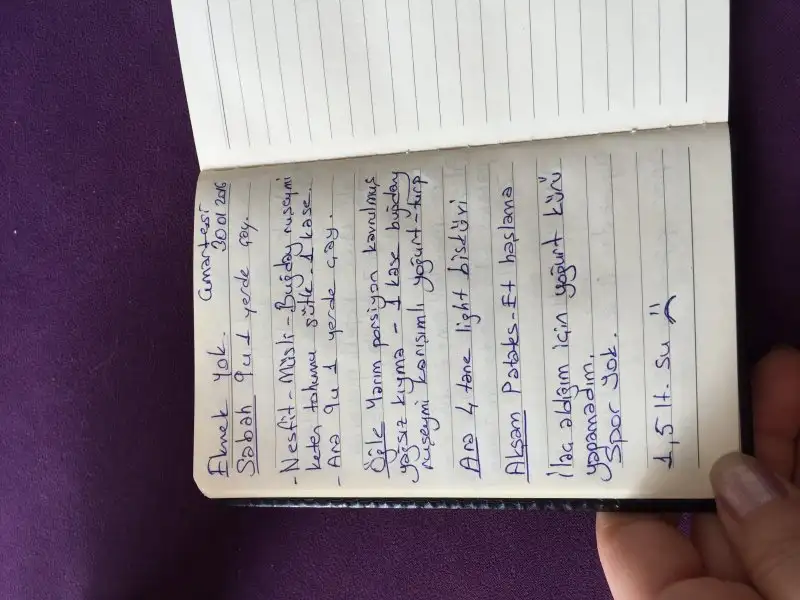 Ekmek yok. Cumartesi
30.01.2016
Sabah 9u 1 yerde çay.
- Nesfit - Müsli - Buğday ruşeymi
keten tohumu sütle 1 kase.
- Ara 9u 1 yerde çay.
Öğle Yarım porsiyon kavrulmuş
yağsız kıyma - 1 kase buğday
ruşeymi karışımlı yoğurt - turp
Ara 4 tane light bisküvi
Akşam Patates - Et haşlama
İlaç aldığım için yoğurt kürü
yapamadım.
Spor yok.
1,5 lt. su